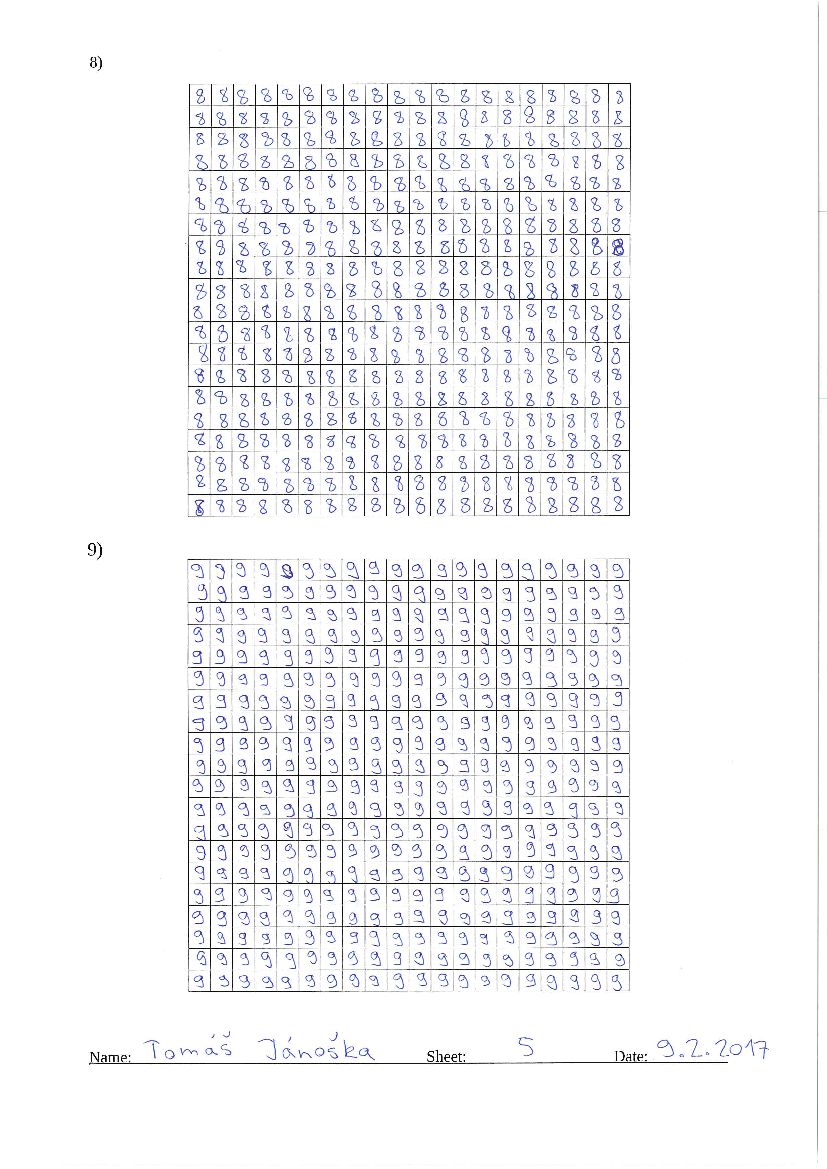 8)
8 8 8 8 8 8 8 8 8 8 8 8 8 8 8 8 8 8 8 8
8 8 8 8 8 8 8 8 8 8 8 8 8 8 8 8 8 8 8 8
8 8 8 8 8 8 8 8 8 8 8 8 8 8 8 8 8 8 8 8
8 8 8 8 8 8 8 8 8 8 8 8 8 8 8 8 8 8 8 8
8 8 8 8 8 8 8 8 8 8 8 8 8 8 8 8 8 8 8 8
8 8 8 8 8 8 8 8 8 8 8 8 8 8 8 8 8 8 8 8
8 8 8 8 8 8 8 8 8 8 8 8 8 8 8 8 8 8 8 8
8 8 8 8 8 8 8 8 8 8 8 8 8 8 8 8 8 8 8 8
8 8 8 8 8 8 8 8 8 8 8 8 8 8 8 8 8 8 8 8
8 8 8 8 8 8 8 8 8 8 8 8 8 8 8 8 8 8 8 8
8 8 8 8 8 8 8 8 8 8 8 8 8 8 8 8 8 8 8 8
8 8 8 8 8 8 8 8 8 8 8 8 8 8 8 8 8 8 8 8
8 8 8 8 8 8 8 8 8 8 8 8 8 8 8 8 8 8 8 8
8 8 8 8 8 8 8 8 8 8 8 8 8 8 8 8 8 8 8 8
8 8 8 8 8 8 8 8 8 8 8 8 8 8 8 8 8 8 8 8
8 8 8 8 8 8 8 8 8 8 8 8 8 8 8 8 8 8 8 8
8 8 8 8 8 8 8 8 8 8 8 8 8 8 8 8 8 8 8 8
8 8 8 8 8 8 8 8 8 8 8 8 8 8 8 8 8 8 8 8
8 8 8 8 8 8 8 8 8 8 8 8 8 8 8 8 8 8 8 8
8 8 8 8 8 8 8 8 8 8 8 8 8 8 8 8 8 8 8 8
9)
9 9 9 9 9 9 9 9 9 9 9 9 9 9 9 9 9 9 9 9
9 9 9 9 9 9 9 9 9 9 9 9 9 9 9 9 9 9 9 9
9 9 9 9 9 9 9 9 9 9 9 9 9 9 9 9 9 9 9 9
9 9 9 9 9 9 9 9 9 9 9 9 9 9 9 9 9 9 9 9
9 9 9 9 9 9 9 9 9 9 9 9 9 9 9 9 9 9 9 9
9 9 9 9 9 9 9 9 9 9 9 9 9 9 9 9 9 9 9 9
9 9 9 9 9 9 9 9 9 9 9 9 9 9 9 9 9 9 9 9
9 9 9 9 9 9 9 9 9 9 9 9 9 9 9 9 9 9 9 9
9 9 9 9 9 9 9 9 9 9 9 9 9 9 9 9 9 9 9 9
9 9 9 9 9 9 9 9 9 9 9 9 9 9 9 9 9 9 9 9
9 9 9 9 9 9 9 9 9 9 9 9 9 9 9 9 9 9 9 9
9 9 9 9 9 9 9 9 9 9 9 9 9 9 9 9 9 9 9 9
9 9 9 9 9 9 9 9 9 9 9 9 9 9 9 9 9 9 9 9
9 9 9 9 9 9 9 9 9 9 9 9 9 9 9 9 9 9 9 9
9 9 9 9 9 9 9 9 9 9 9 9 9 9 9 9 9 9 9 9
9 9 9 9 9 9 9 9 9 9 9 9 9 9 9 9 9 9 9 9
9 9 9 9 9 9 9 9 9 9 9 9 9 9 9 9 9 9 9 9
9 9 9 9 9 9 9 9 9 9 9 9 9 9 9 9 9 9 9 9
9 9 9 9 9 9 9 9 9 9 9 9 9 9 9 9 9 9 9 9
9 9 9 9 9 9 9 9 9 9 9 9 9 9 9 9 9 9 9 9
Name: Tomáš Jánoška Sheet: 5 Date: 9.2.2017